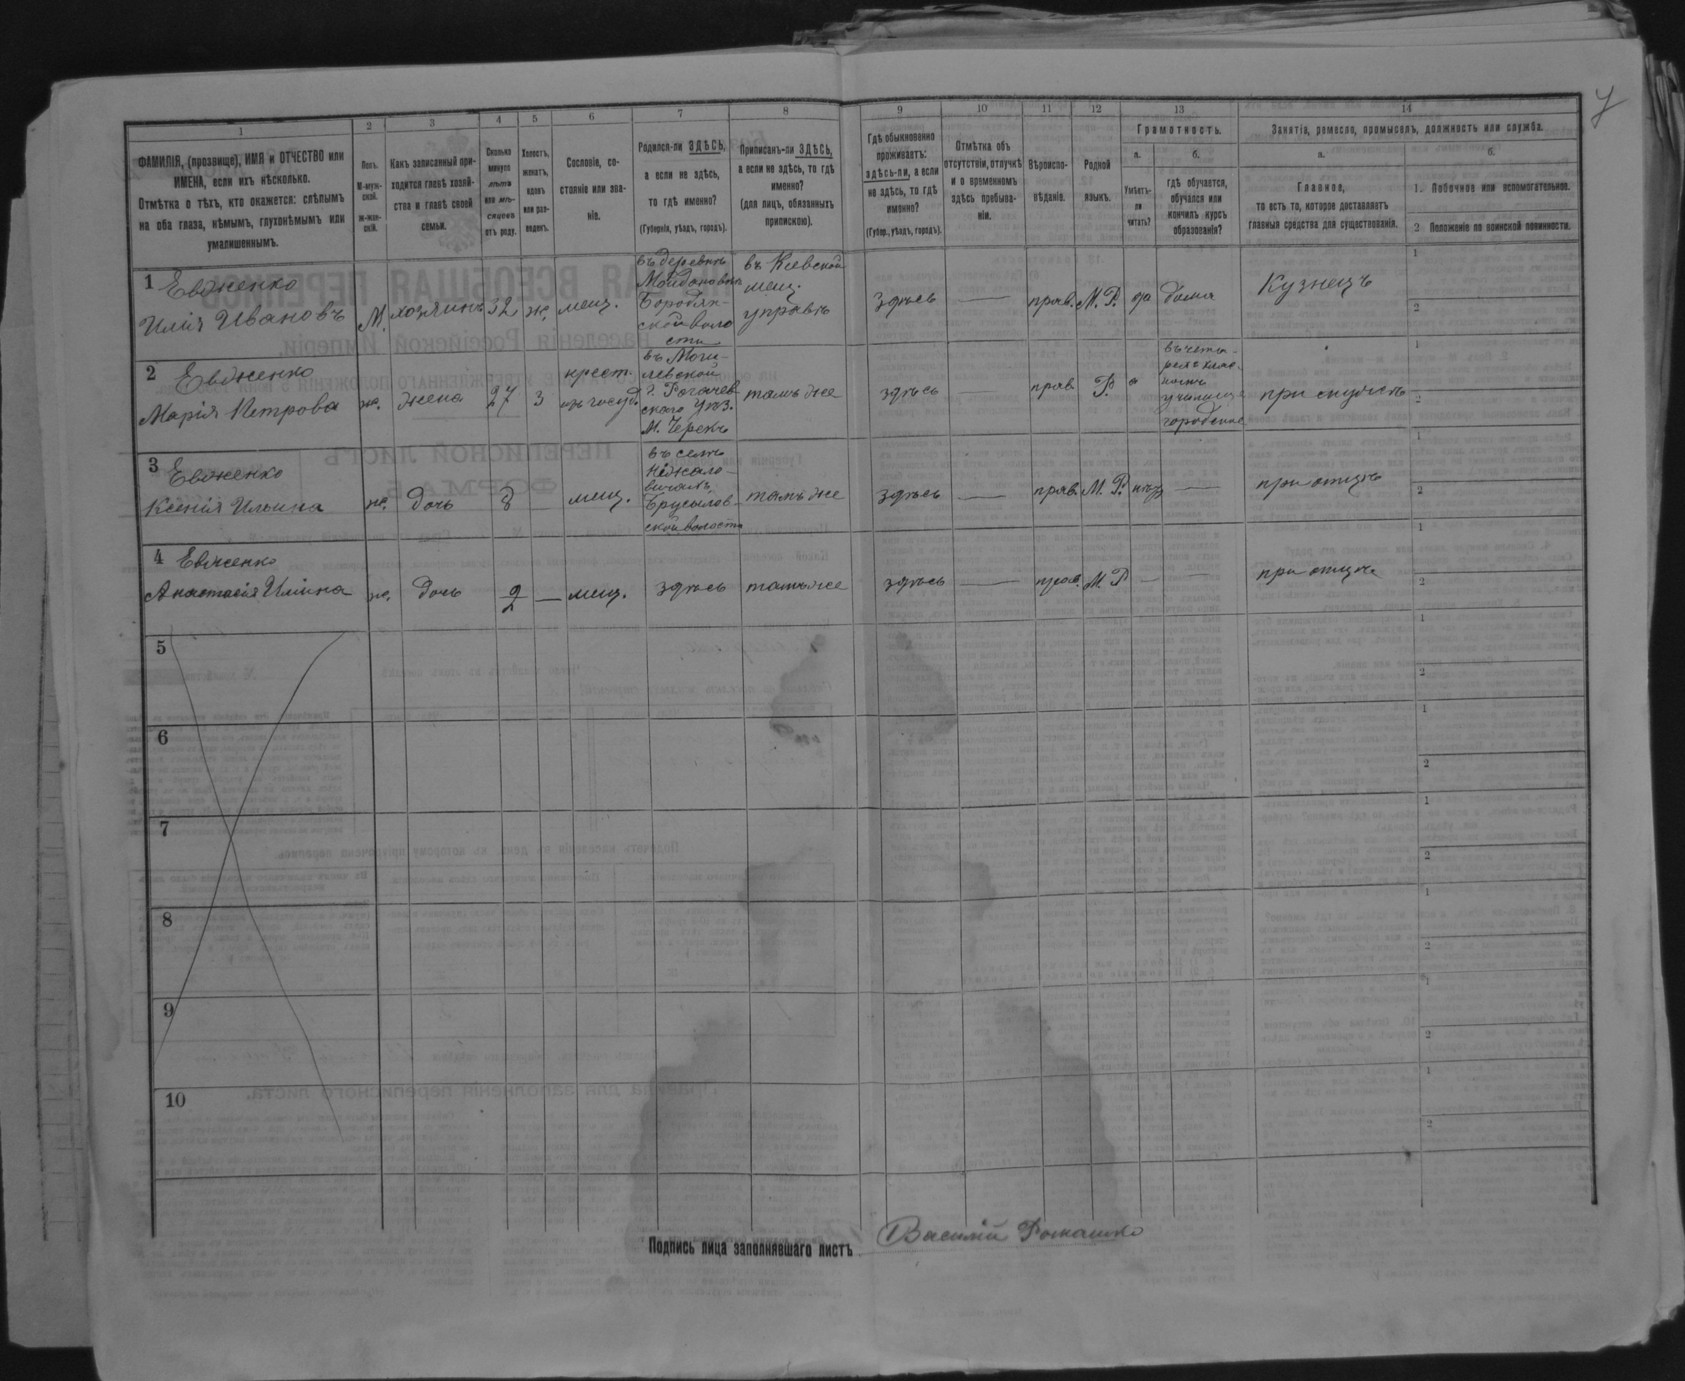 1 2 3 4 5 6 7 8 9 10 11 12 13 14
ФАМИЛІЯ, (прозвище), ИМЯ и ОТЧЕСТВО или
ИМЕНА, если ихъ нѣсколько.
Отмѣтка о тѣхъ, кто окажется: слѣпымъ
на оба глаза, нѣмымъ, глухонѣмымъ или
умалишеннымъ.
Полъ.
М-муж-
ской.
ж-жен-
скій.
Какъ записанный при-
ходится главѣ хозяй-
ства и главѣ своей
семьи.
Сколько
минуло
лѣтъ
или мѣ-
сяцевъ
отъ роду.
Холостъ,
женатъ,
вдовъ
или раз-
веденъ.
Сословіе, со-
стояніе или зва-
ніе.
Родился-ли ЗДѢСЬ,
а если не здѣсь,
то гдѣ именно?
(Губернія, уѣздъ, городъ).
Приписанъ-ли ЗДѢСЬ,
а если не здѣсь, то гдѣ
именно?
(для лицъ, обязанныхъ
припискою).
Гдѣ обыкновенно
проживаетъ:
здѣсь-ли, а если
не здѣсь, то гдѣ
именно?
(Губер., уѣздъ, городъ).
Отмѣтка объ
отсутствіи, отлучкѣ
и о временномъ
здѣсь пребыва-
ніи.
Вѣроиспо-
вѣданіе.
Родной
языкъ.
Грамотность.
а.
Умѣетъ-
ли
читать?
б.
гдѣ обучается,
обучался или
кончилъ курсъ
образованія?
Занятія, ремесло, промыселъ, должность или служба.
а.
Главное,
то есть то, которое доставляетъ
главныя средства для существованія.
б.
1. Побочное или вспомогательное.
2 Положеніе по воинской повинности.
1 Евженко
Илія Ивановъ
М.
хозяинъ
32
ж.
мещ.
въ деревнѣ
Майдановкѣ
Бородян-
ской воло
сти
въ Кіевской
мещ.
управѣ
здѣсь
—
прав.
М. Р.
да
дома
Кузнецъ
1
2
2 Евженко
Марія Петрова
ж.
жена
27
з
крест.
изъ госуд.
въ Моги-
левской
г. Рогачев
скаго уѣз.
тамъ же
здѣсь
—
прав.
Р.
въ четы-
рехклас-
номъ
училищѣ
городское
при мужѣ
1
2
3 Евженко
Ксенія Ильина
ж.
дочь
8
—
мещ.
въ селѣ
Брусилов-
ской волости
тамъ же
здѣсь
—
прав.
М. Р.
нѣтъ
—
при отцѣ
1
2
4 Евженко
Анастасія Иліина
ж.
дочь
2
—
мещ.
здѣсь
тамъ же
здѣсь
—
прав.
М. Р.
—
—
при отцѣ
1
2
5
1
2
6
1
2
7
1
2
8
1
2
9
1
2
10
1
2
Подпись лица заполнявшаго листъ Василій Ромашко